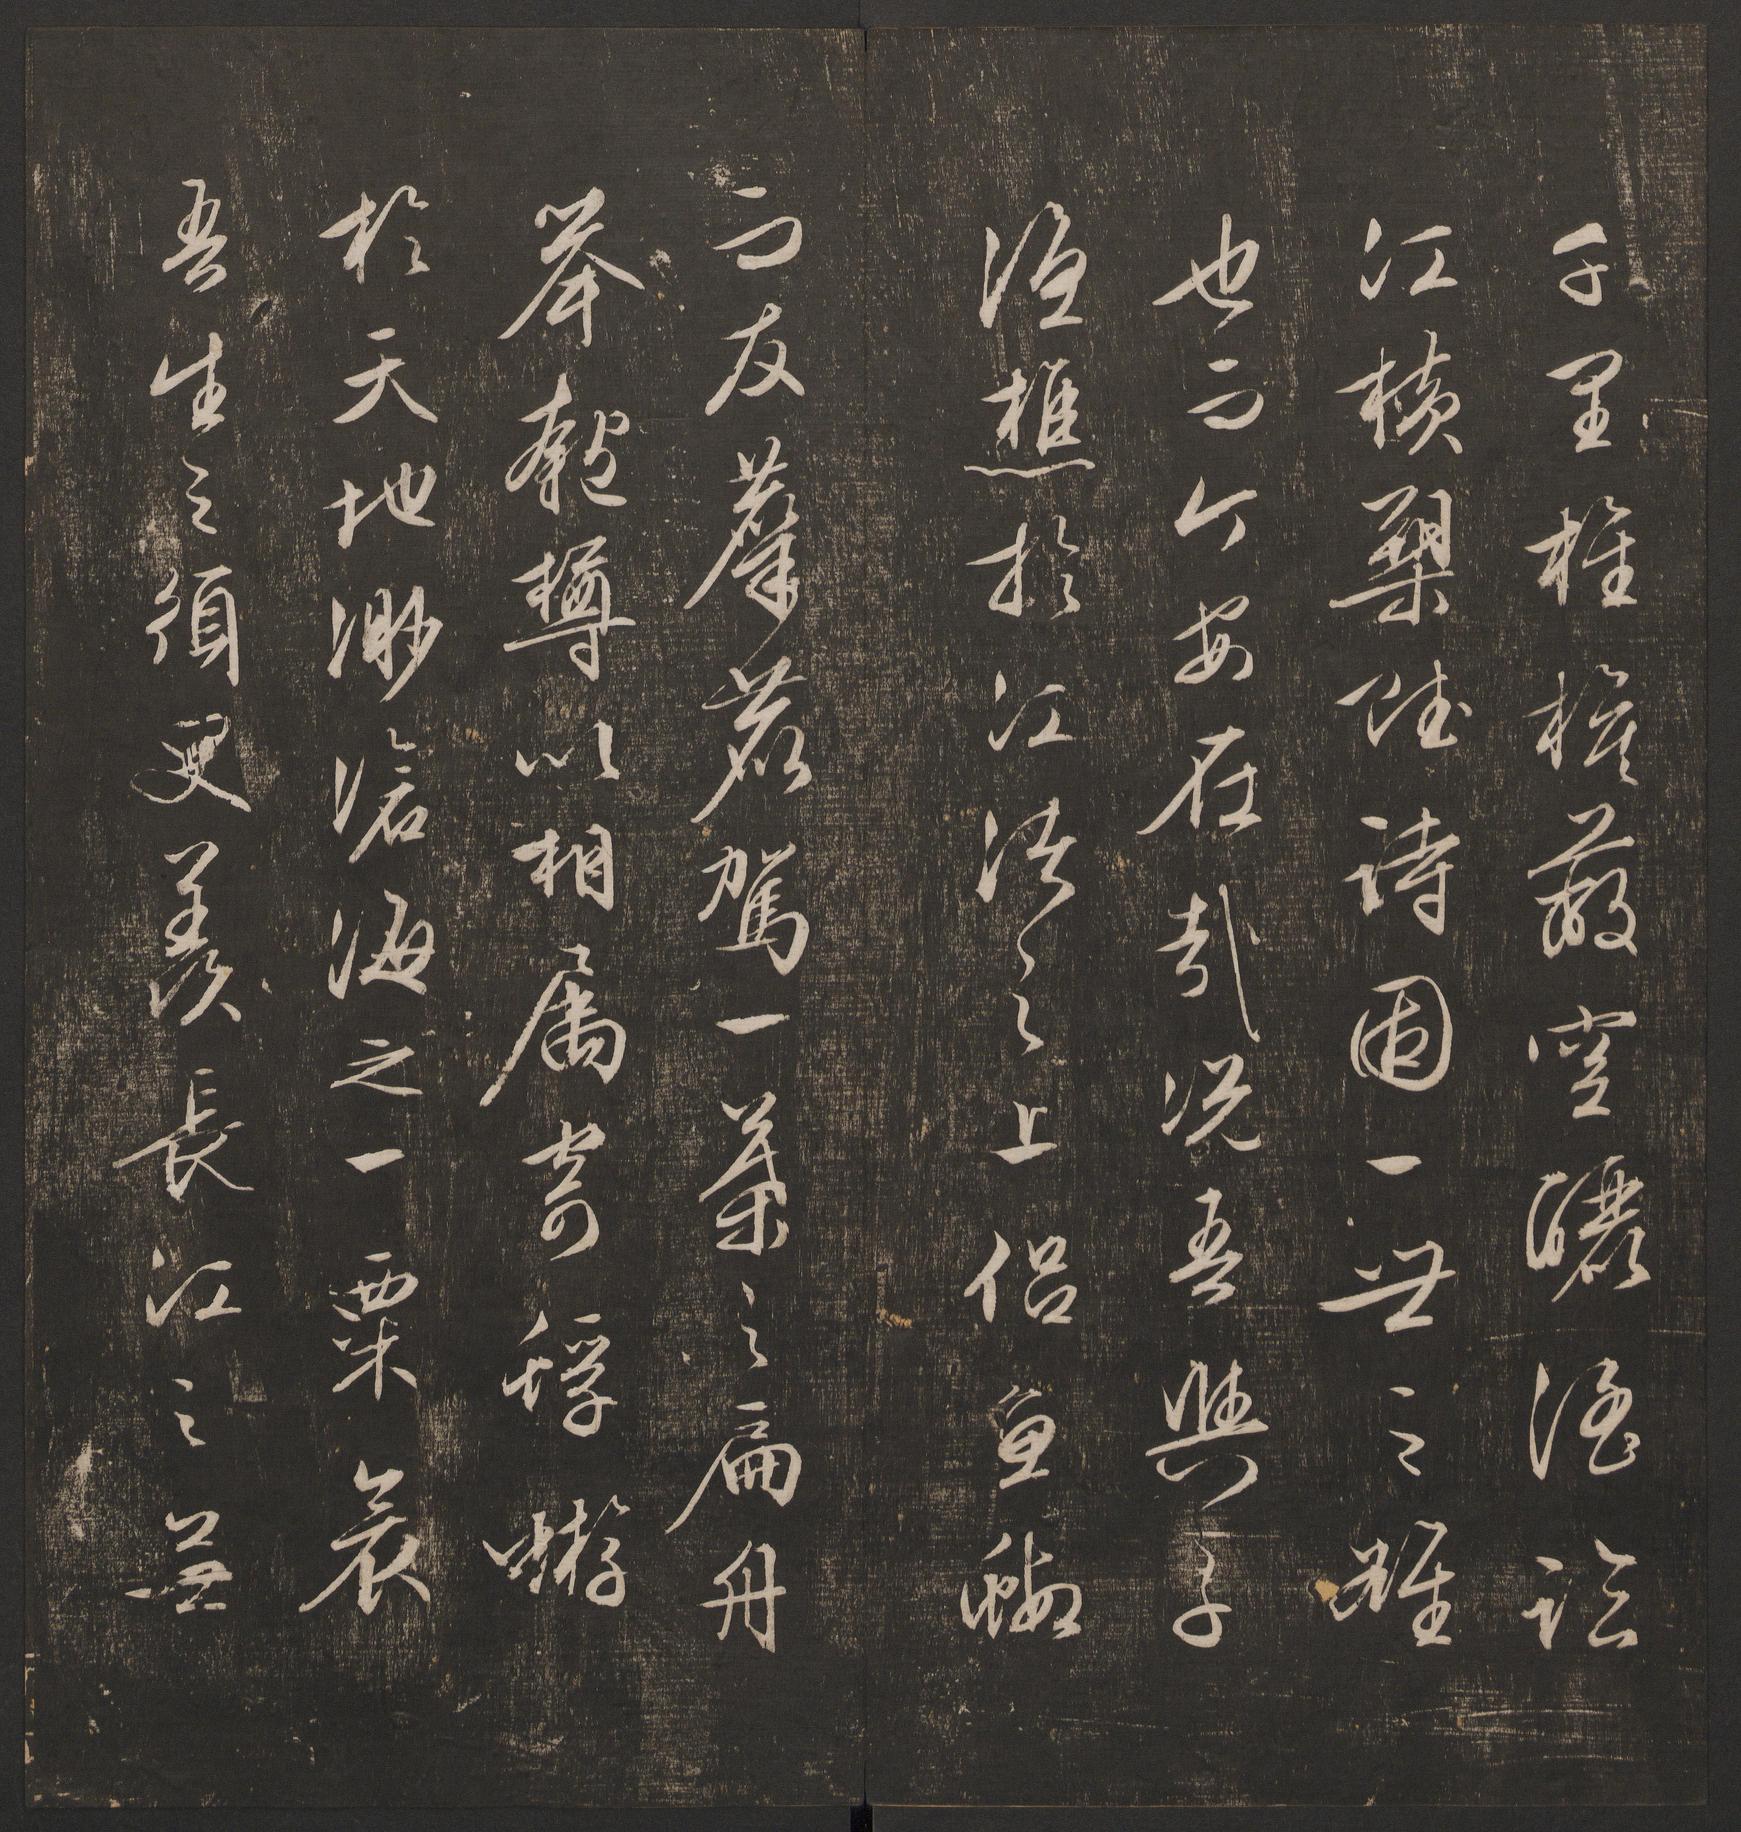 千里旌旗蔽空釃酒臨
江橫槊賦詩固一世之雄
也而今安在哉况吾與子
漁樵於江渚之上侶魚蝦
而友麋鹿駕一葉之扁舟
舉匏樽以相属寄蜉蝣
於天地渺滄海之一粟哀
吾生之須臾羨長江之無